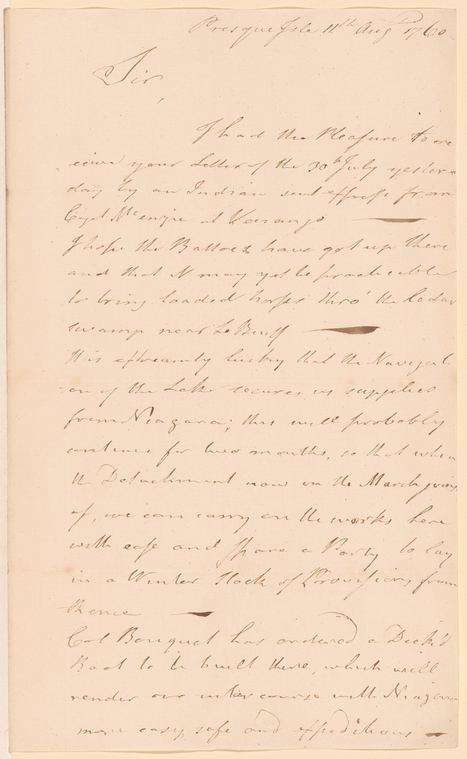 Presque Isle 11th Augt 1760
Sir,
I had the Pleasure to re
ceive your Letter of the 30th July yester
day by an Indian sent express from
Capt Mckenzie at Venango
I hope the Batteaux have got up there
and that it may yet be practicable
to bring loaded horses thro' the Cedar
swamp near Le Beuff
It is extreamly lucky that the Navigati
on of the Lake secures us supplies
from Niagara; this will probably
continue for two months, so that when
the Detachment now on the March joins
us, we can carry on the works here
with ease and spare a Party to lay
in a Winter Stock of Provisions from
thence
Col Bouquet has ordered a Deck'd
Boat to be built there, which will
render our intercourse with Niagara
more easy, safe and expeditious